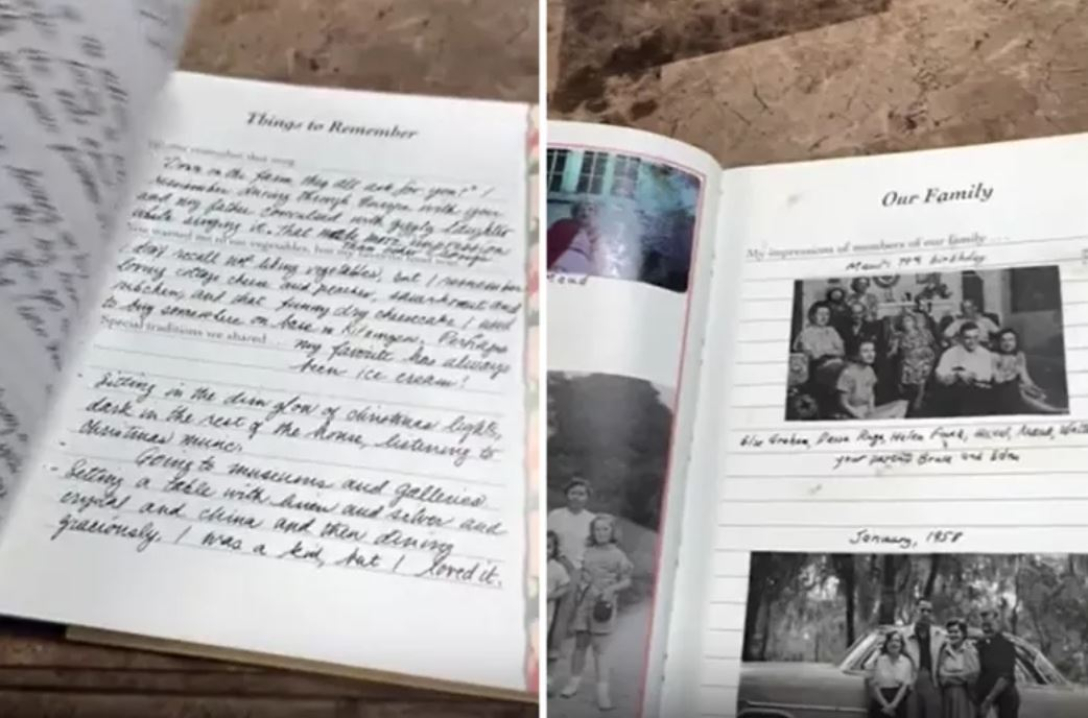 Things to Remember
remember that song
"Down on the farm they all ask for you?" I
remember driving through Europe with you
and my father convulsed with giggly laughter
while singing it. That made more impression
than other things
You wanted me to eat vegetables, but my
I don't recall not liking vegetables, but I remember
loving cottage cheese and peaches, sauerkraut and
and that funny dry cheesecake I used
to buy somewhere on base in Kitzingen. Perhaps
Special traditions we shared ... my favorite has always
been ice cream!
- Sitting in the dim glow of Christmas lights,
dark in the rest of the house, listening to
Christmas music.
- Going to museums and galleries
- Setting a table with linen and silver and
crystal and china and then dining
graciously. I was a kid, but I loved it.
Maud
Our Family
My impressions of members of our family ...
Maud's birthday
Graham, Helen Maud,
your parents Bruce and Edna
January, 1958